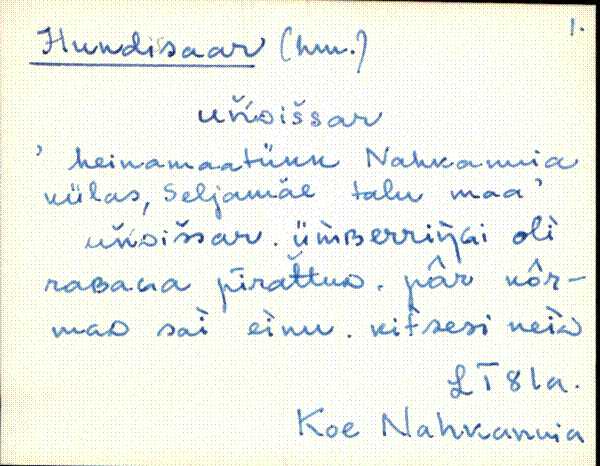 1.
Hundisaar (hm.)
uńDišsar
' heinamaatükk Nahkanuia
külas, Seljamäe talu maa'
uńDišsar. üm̀ʙerriŋ̀Gi oli
raʙaGa pirat̆tuD. pâr kôr-
maD sai einu. kitsesi neiD
LT 81a.
Koe Nahkanuia